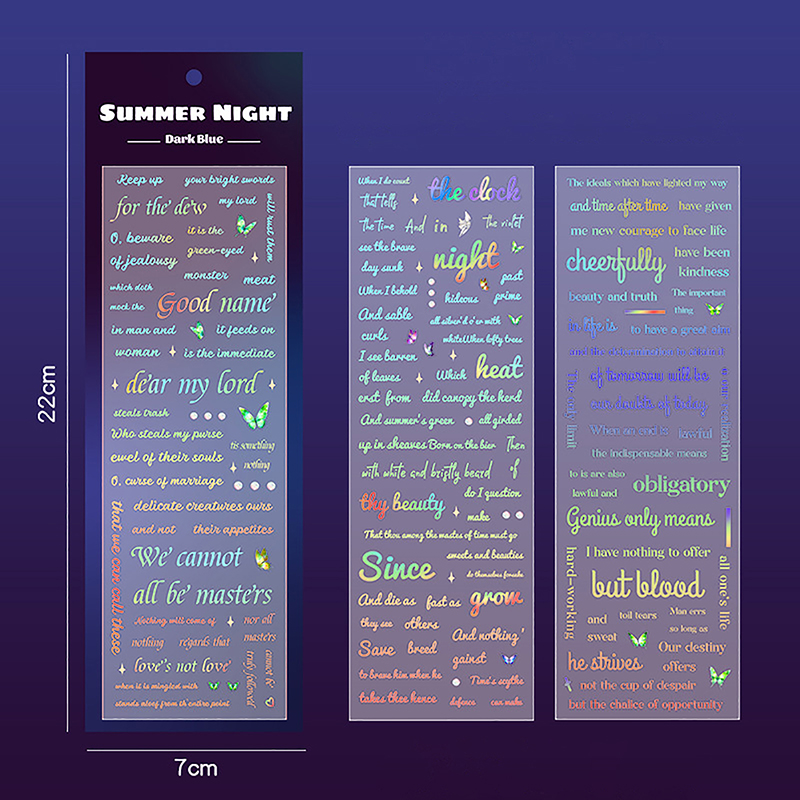 SUMMER NIGHT
Dark Blue
22cm
7cm
Keep up your bright swords
for the dew my lord
will rust them
O, beware it is the
of jealousy green-eyed
monster meat
which doth
mock the Good name
in man and it feeds on
woman is the immediate
dear my lord
steals trash
Who steals my purse tis something
ewel of their souls nothing
O, curse of marriage
that we can call these
delicate creatures ours
and not their appetites
We cannot
all be masters
Nothing will come of nor all
nothing regards that masters
love's not love
cannot be
truly followed
when it is mingled with
stands aloof from th'entire point
When I do count the clock
that tells
the time And in the violet
see the brave
day sunk night past
When I behold hideous prime
And sable all silver'd o'er with
curls white When lofty trees
I see barren
of leaves Which heat
erst from did canopy the herd
And summer's green all girded
up in sheaves Born on the bier Then
with white and bristly beard of
thy beauty do I question
make
That thou among the wastes of time must go
Since sweets and beauties
do themselves forsake
And die as fast as grow
they see others
And nothing'
Save breed gainst
to brave him when he Time's scythe
takes thee hence defence can make
The ideals which have lighted my way
and time after time have given
me new courage to face life
cheerfully have been
kindness
beauty and truth The important
thing
in life is to have a great aim
and the determination to attain it
The only limit
of tomorrow will be
our doubts of today
When an end is lawful
the indispensable means
to is are also
lawful and obligatory
Genius only means
hard-working
all one's life
I have nothing to offer
but blood
and toil tears Man errs
sweat so long as
Our destiny
he strives offers
not the cup of despair
but the chalice of opportunity